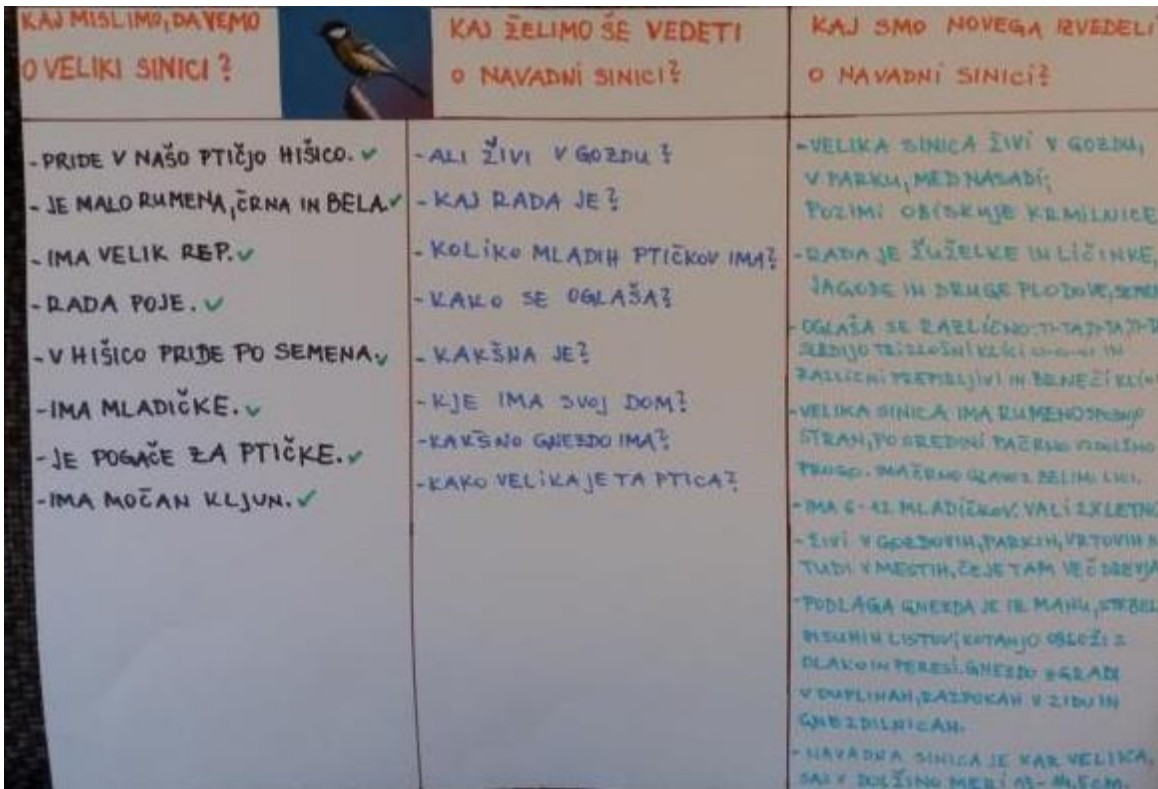 KAJ MISLIMO, DA VEMO
O VELIKI SINICI?
- PRIDE V NAŠO PTIČJO HIŠICO. ✓
- JE MALO RUMENA, ČRNA IN BELA. ✓
- IMA VELIK REP. ✓
- RADA POJE. ✓
- V HIŠICO PRIDE PO SEMENA. ✓
- IMA MLADIČKE. ✓
- JE POGAČE ZA PTIČKE. ✓
- IMA MOČAN KLJUN. ✓
KAJ ŽELIMO ŠE VEDETI
O NAVADNI SINICI?
- ALI ŽIVI V GOZDU?
- KAJ RADA JE?
- KOLIKO MLADIH PTIČKOV IMA?
- KAKO SE OGLAŠA?
- KAKŠNA JE?
- KJE IMA SVOJ DOM?
- KAKŠNO GNEZDO IMA?
- KAKO VELIKA JE TA PTICA?
KAJ SMO NOVEGA IZVEDELI
O NAVADNI SINICI?
- VELIKA SINICA ŽIVI V GOZDU,
V PARKU, MED NASADI;
POZIMI OBISKUJE KRMILNICE
- RADA JE ŽUŽELKE IN LIČINKE,
JAGODE IN DRUGE PLODOVE,
- OGLAŠA SE RAZLIČNO:
IN
RAZLIČNI
- VELIKA SINICA IMA RUMENO SPODNJO
STRAN, PO SREDINI PA ČRNO VZDOLŽNO
PROGO. IMA ČRNO GLAVO Z BELIMI LICI.
- IMA 6-12 MLADIČKOV. VALI 2X LETNO
- ŽIVI V GOZDOVIH, PARKIH, VRTOVIH
TUDI V MESTIH, ČE JE TAM VEČ DREVJA
- PODLAGA GNEZDA JE IZ MAHU,
IN SUHIH LISTOV; KOTANJO OBLOŽI Z
DLAKO IN PERESI. GNEZDO ZGRADI
V DUPLINAH, RAZPOKAH V ZIDU IN
GNEZDILNICAH.
- NAVADNA SINICA JE KAR VELIKA,
SAJ V DOLŽINO MERI 13-14,5 cm.